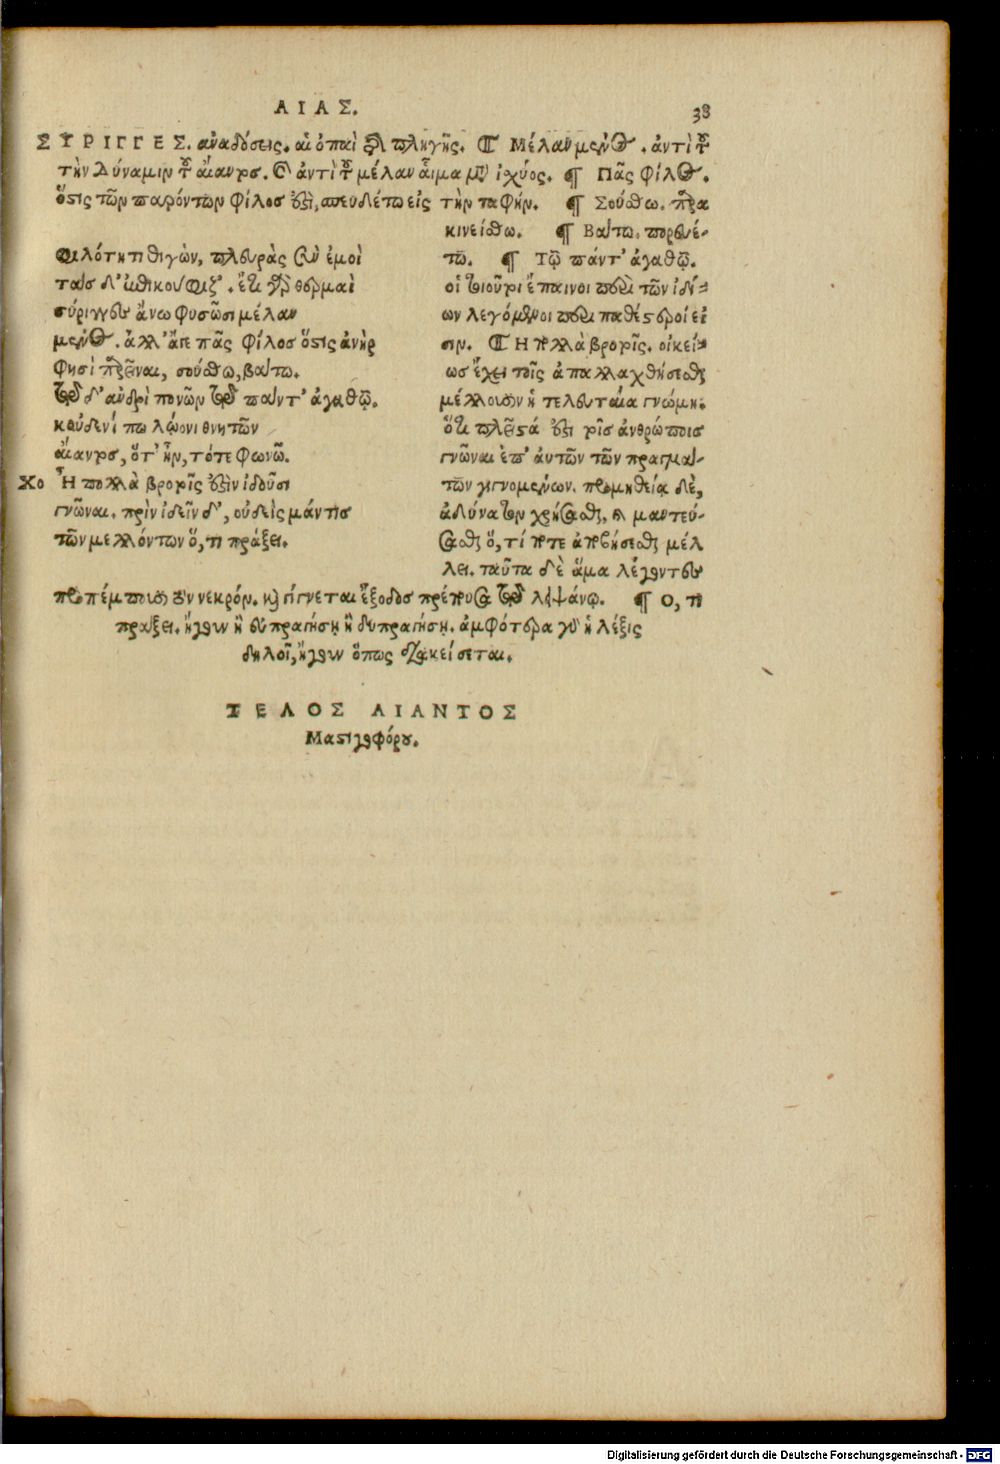 ΑΙΑΣ.
38
ΣΥΡΙΓΓΕΣ. ἀναδόσεις. αἱ ὀπαὶ διὰ πληγῆς. ¶ Μέλαν μένος. ἀντὶ τοῦ
τὴν δύναμιν τοῦ αἵματος. ἢ ἀντὶ τοῦ μέλαν αἷμα μετὰ ἰχύος. ¶ Πᾶς φίλος.
ὅστις τῶν παρόντων φίλος ἐστὶ, σπευδέτω εἰς τὴν ταφήν. ¶ Σούσθω. παρα
κινείσθω. ¶ Βάτω. πορευέ-
τω. ¶ Τῷ πάντ' ἀγαθῷ.
οἱ τοιοῦτοι ἔπαινοι περὶ τῶν ἰδί-
ων λεγόμενοι περιπαθέστεροί εἰ
σιν. ¶ Ἡ πολλὰ βροτοῖς. οἰκεί-
ως ἔχει τοῖς ἀπαλλαχθήσεσθαι
μέλλουσιν ἡ τελευταία γνώμη.
ὅτι πλεῖστά ἐστι τοῖς ἀνθρώποις
γνῶναι ἐπ' αὐτῶν τῶν πραγμά-
των γιγνομένων. προμηθείᾳ δὲ,
ἀδύνατον χρήσασθαι, καὶ μαντεύ-
σασθαι ὅ, τί ποτε ἀποβήσεσθαι μέλ
λει. ταῦτα δὲ ἅμα λέγοντες
προπέμπουσι τὸν νεκρόν. καὶ γίγνεται ἔξοδος πρέπουσα τῷ λειψάνῳ. ¶ Ὅ, τι
πράξει. ἤγουν ἢ εὐπραγήσῃ ἢ δυσπραγήσῃ. ἀμφότερα γὰρ ἡ λέξις
δηλοῖ, ἤγουν ὅπως διακείσεται.
φιλότητι θιγὼν, πλευρὰς σὺν ἐμοὶ
τάσδ' ἐπικούφιζ'. ἔτι γὰρ θερμαὶ
σύριγγες ἄνω φυσῶσι μέλαν
μένος. ἀλλ' ἄγε πᾶς φίλος ὅστις ἀνὴρ
φησὶ παρεῖναι, σούσθω, βάτω.
τῷδ' ἀνδρὶ πονῶν τῷ πάντ' ἀγαθῷ.
κοὐδενί πω λῴονι θνητῶν
αἴαντος, ὅτ' ἦν, τότε φωνῶ.
Χο Ἦ πολλὰ βροτοῖς ἐστὶν ἰδοῦσι
γνῶναι. πρὶν ἰδεῖν δ', οὐδεὶς μάντις
τῶν μελλόντων ὅ, τι πράξει.
ΤΕΛΟΣ ΑΙΑΝΤΟΣ
Μαστιγοφόρου.
Digitalisierung gefördert durch die Deutsche Forschungsgemeinschaft - DFG